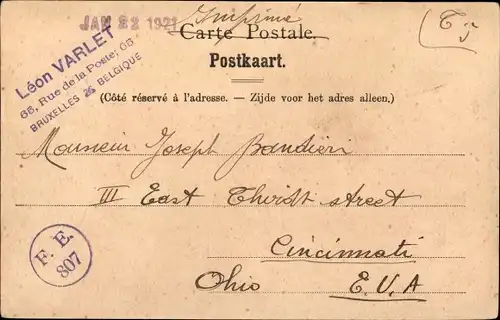 JAN 22 1921
Imprimé
Carte Postale.
Postkaart.
(Côté réservé à l'adresse. — Zijde voor het adres alleen.)
Léon VARLET
65, Rue de la Poste, 65
BRUXELLES BELGIQUE
Monsieur Joseph Bandieri
III East Thirdt street
Cincinnati
Ohio E.U.A
F. E.
807